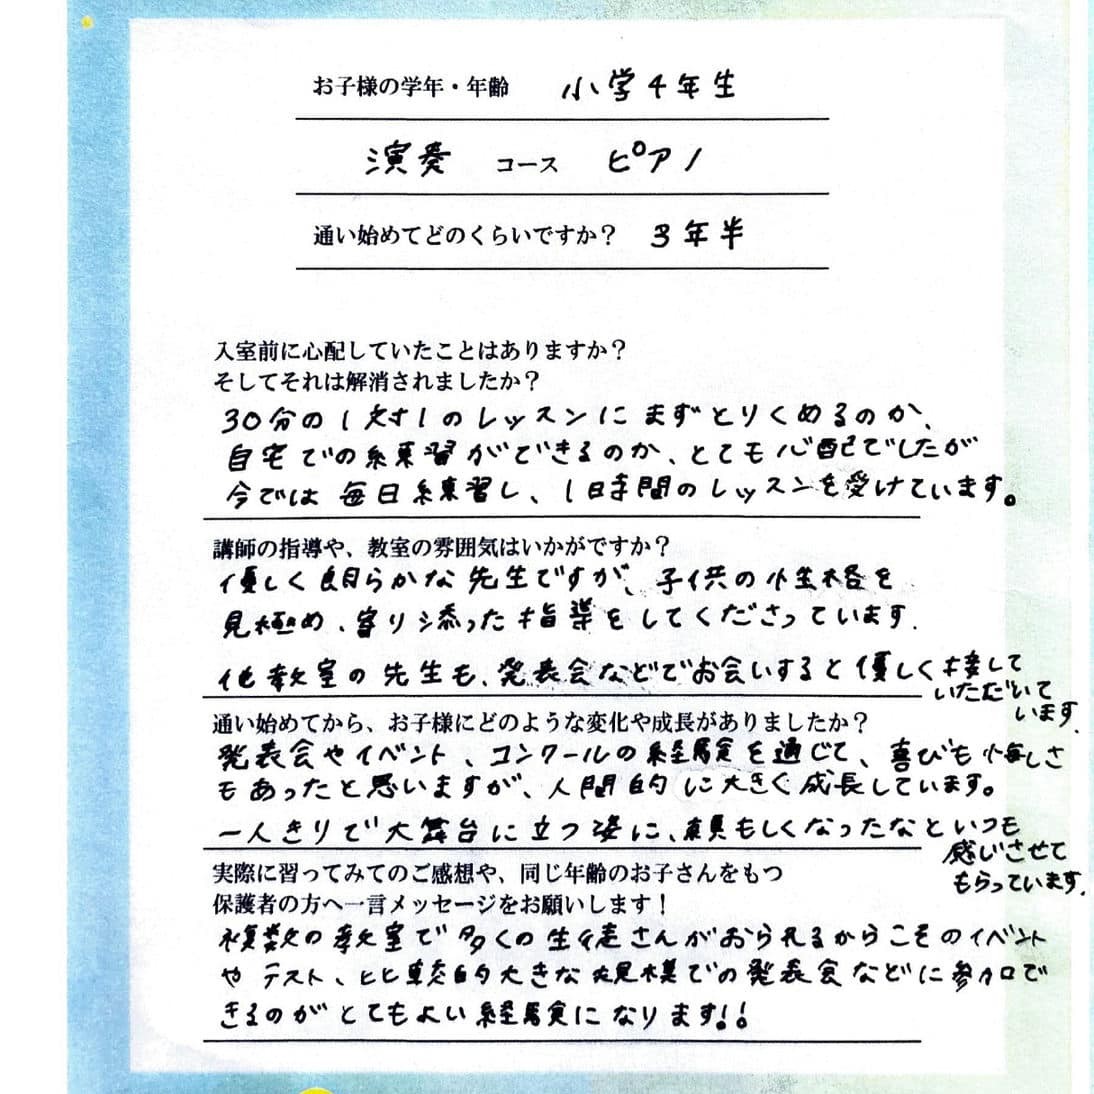 お子様の学年・年齢 小学4年生
演奏 コース ピアノ
通い始めてどのくらいですか？ 3年半
入室前に心配していたことはありますか？
そしてそれは解消されましたか？
30分の1対1のレッスンにまずとりくめるのか、
自宅での練習ができるのか、とても心配でしたが
今では毎日練習し、1時間のレッスンを受けています。
講師の指導や、教室の雰囲気はいかがですか？
優しく朗らかな先生ですが、子供の性格を
見極め、寄り添った指導をしてくださっています.
他教室の先生も、発表会などでお会いすると優しく接して
いただいて
います.
通い始めてから、お子様にどのような変化や成長がありましたか？
発表会やイベント、コンクールの経験を通じて、喜びも悔しさ
もあったと思いますが、人間的に大きく成長しています。
一人きりで大舞台に立つ姿に、頼もしくなったなといつも
感じさせて
もらっています.
実際に習ってみてのご感想や、同じ年齢のお子さんをもつ
保護者の方へ一言メッセージをお願いします！
複数の教室で多くの生徒さんがおられるからこそのイベント
やテスト、比較的大きな規模での発表会などに参加で
きるのがとてもよい経験になります!!